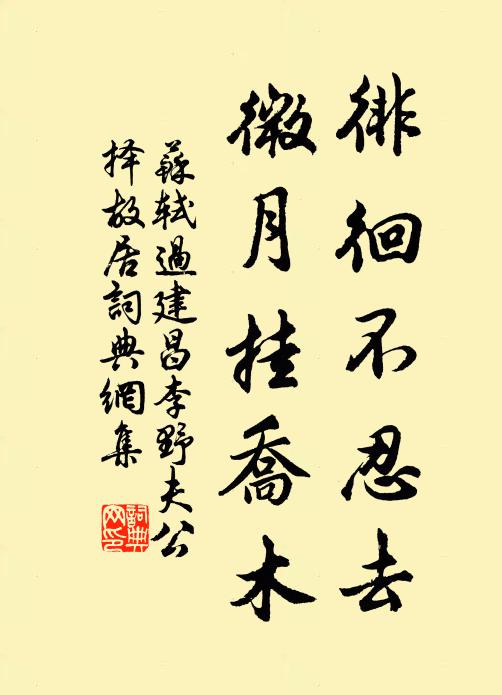 徘徊不忍去
微月挂喬木
蘇軾過建昌李野夫公
择故居詞典網集
詞典
网印